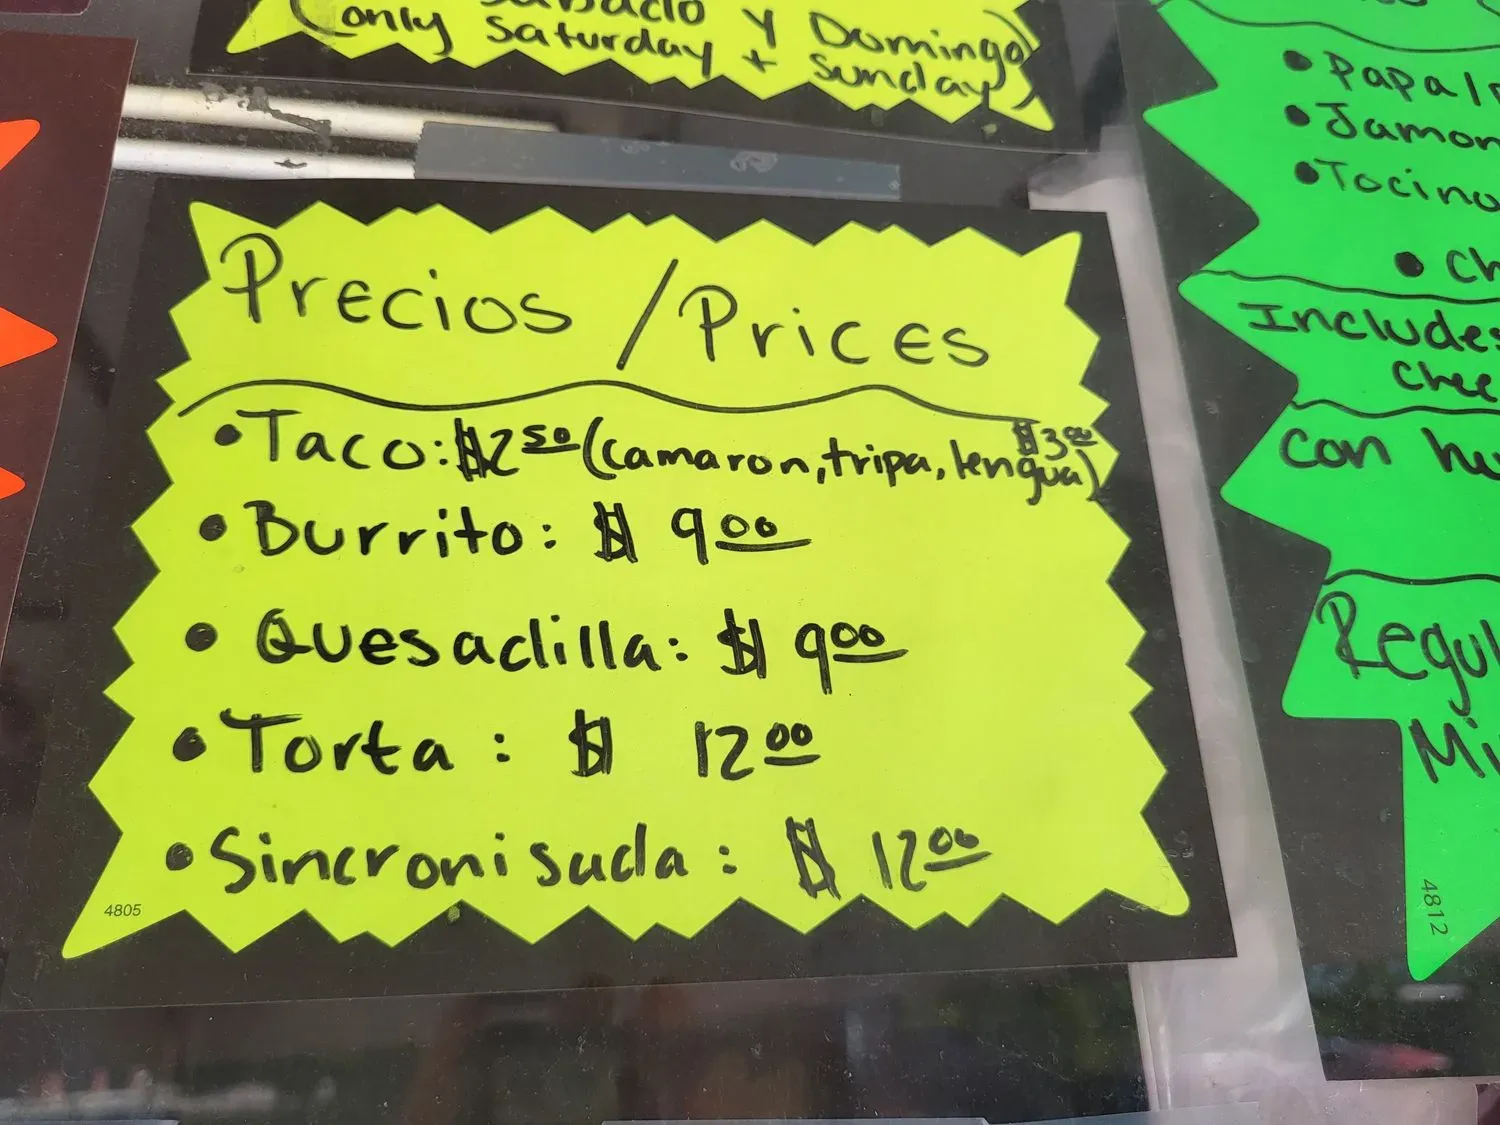 Sabado y Domingo)
(only Saturday + Sunday)
Precios / Prices
• Taco: $2.50 (camaron, tripa, lengua) $3.00
• Burrito: $ 9.00
• Quesadilla: $ 9.00
• Torta : $ 12.00
• Sincronisada : $ 12.00
4805
• Papa
• Jamon
• Tocino
• Ch
Includes
Chee
Con hu
Regul
Mi
4812